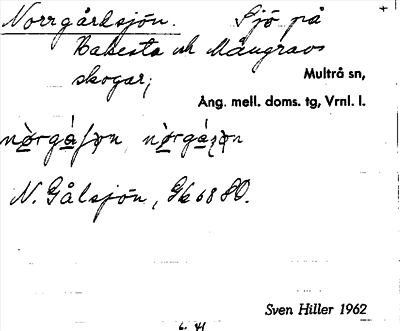 Norrgårdsjön. Sjö på
Rabesta och Mångravs
skogar;
Multrå sn,
Ång. mell. doms. tg, Vrnl. l.
N. Gålsjön, Gk 68 80.
Sven Hiller 1962